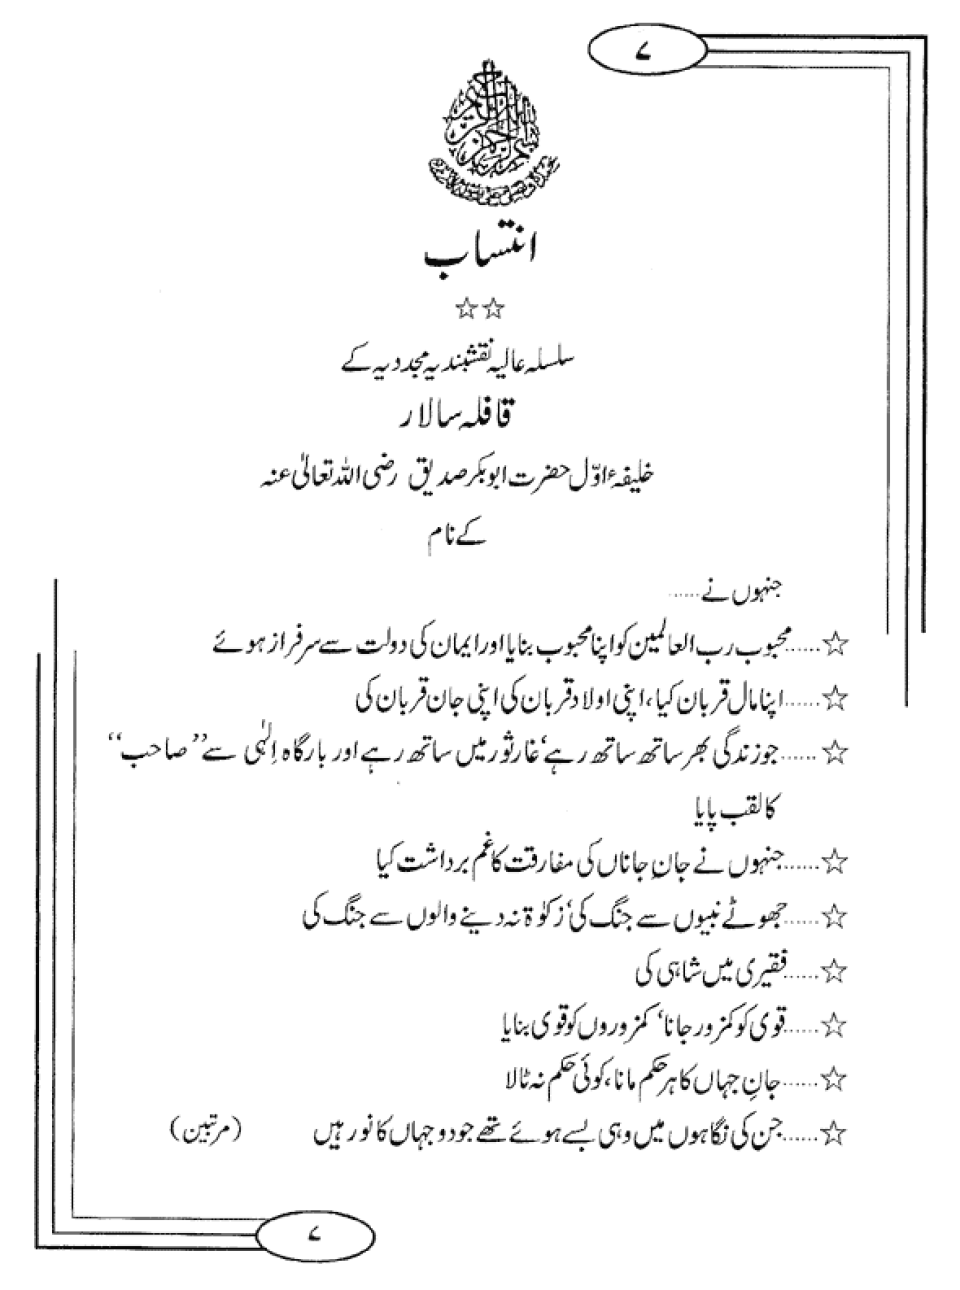 ۷
انتساب
☆☆
سلسلہ عالیہ نقشبندیہ مجددیہ کے
قافلہ سالار
خلیفۂ اوّل حضرت ابوبکر صدیق رضی اللہ تعالیٰ عنہ
کے نام
جنہوں نے......
☆......محبوب رب العالمین کو اپنا محبوب بنایا اور ایمان کی دولت سے سرفراز ہوئے
☆......اپنا مال قربان کیا، اپنی اولاد قربان کی اپنی جان قربان کی
☆......جو زندگی بھر ساتھ ساتھ رہے، غار ثور میں ساتھ رہے اور بارگاہ اِلٰہی سے ’’صاحب‘‘
کا لقب پایا
☆......جنہوں نے جانِ جاناں کی مفارقت کا غم برداشت کیا
☆......جھوٹے نبیوں سے جنگ کی، زکوٰۃ نہ دینے والوں سے جنگ کی
☆......فقیری میں شاہی کی
☆......قوی کو کمزور جانا، کمزوروں کو قوی بنایا
☆......جانِ جہاں کا ہر حکم مانا، کوئی حکم نہ ٹالا
☆......جن کی نگاہوں میں وہی بسے ہوئے تھے جو دو جہاں کا نور ہیں (مرتبین)
۷